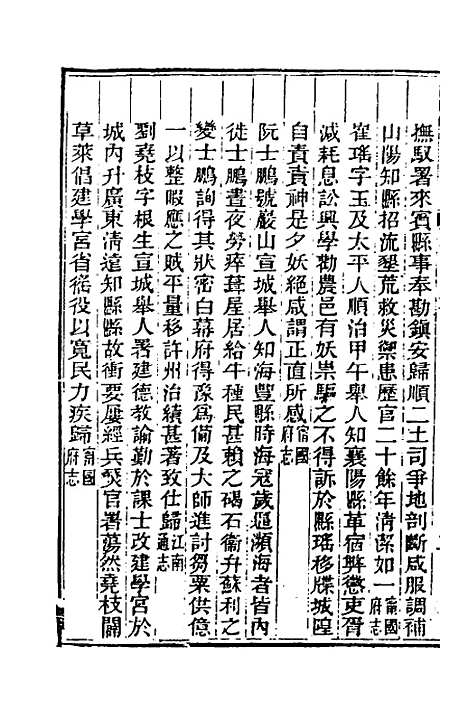 撫馭署來賓縣事奉勘鎭安歸順二土司爭地剖斷咸服調補
山陽知縣招流墾荒救災禦患歷官二十餘年淸潔如一甯國府志
崔瑤字玉及太平人順治甲午舉人知襄陽縣革宿弊懲吏胥
減耗息訟興學勸農邑有妖祟驅之不得訴於縣瑤移牒城隍
自責責神是夕妖絕咸謂正直所感甯國府志
阮士鵬號嚴山宣城舉人知海豐縣時海寇歲逼瀕海者皆內
徙士鵬晝夜勞瘁葺屋居給牛種民甚賴之碣石衞弁蘇利之
變士鵬詗得其狀密白幕府得豫爲備及大師進討芻粟供億
一以整暇應之賊平量移許州治績甚著致仕歸江南通志
劉堯枝字根生宣城舉人署建德敎諭勤於課士改建學宮於
城內升廣東淸遠知縣縣故衝要屢經兵燹官署蕩然堯枝闢
草萊倡建學宮省徭役以寬民力疾歸甯國府志